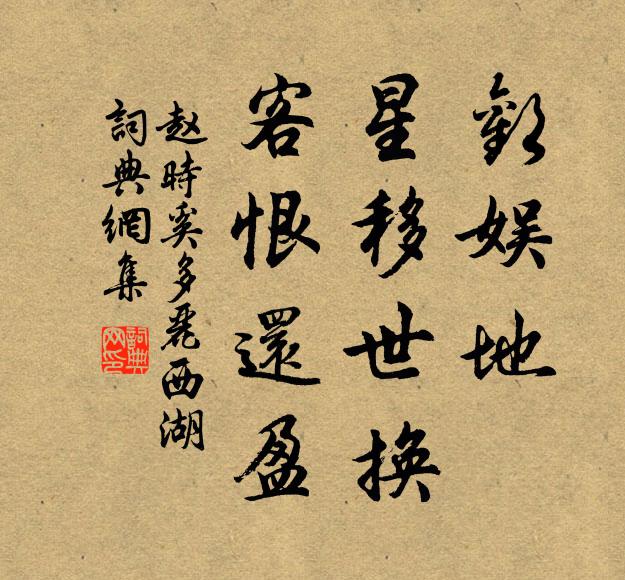 歡娱地
星移世換
客恨還盈
赵時奚多麗西湖
詞典網集
詞典
网印